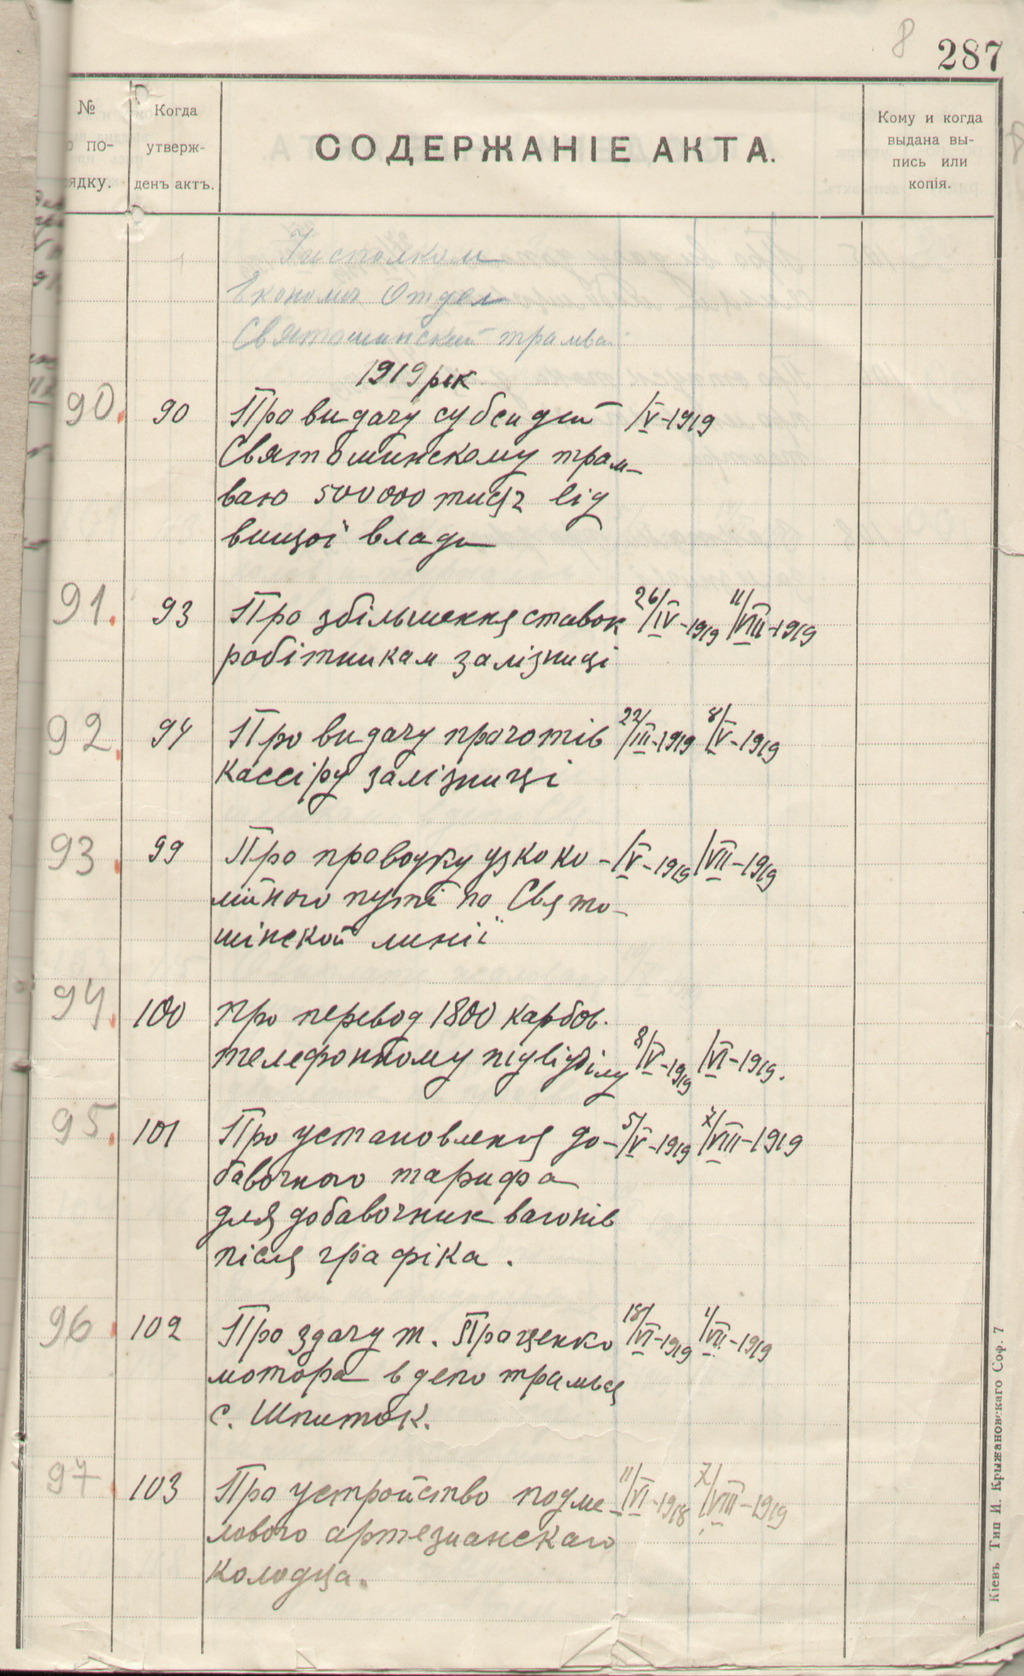 8
287
№
по-
рядку.
Когда
утверж-
денъ актъ.
СОДЕРЖАНІЕ АКТА.
Кому и когда
выдана вы-
пись или
копія.
Отдел
Святошинский трамвай
1919 рік
90. 90 Про видачу субсидій /V-1919
Святошинскому трам-
ваю 500000 тисяч від
вищої влади
91. 93 Про збільшення ставок 26/IV-1919 11/VIII-1919
робітникам залізниці
92. 94 Про видачу прогонів 22/III-1919 8/V-1919
кассіру залізниці
93. 99 Про проводку узкоко- /V-1919 /VII-1919
лійного путі по Свято-
шінской линії
94. 100 Про перевод 1800 карбов.
телефонному підвідділу 8/V-1919 /VI-1919.
95. 101 Про установлення до- 5/V-1919 7/VIII-1919
бавочного тарифа
для добавочник вагонів
після графіка.
96. 102 Про здачу т. Проценко 18/VI-1919 1/VII-1919
мотора в депо трамвая
с. Шпиток.
97. 103 Про устройство 11/VI-1918 7/VIII-1919
артезианскаго
колодца.
Кіевъ Тип И. Крыжановскаго Соф. 7